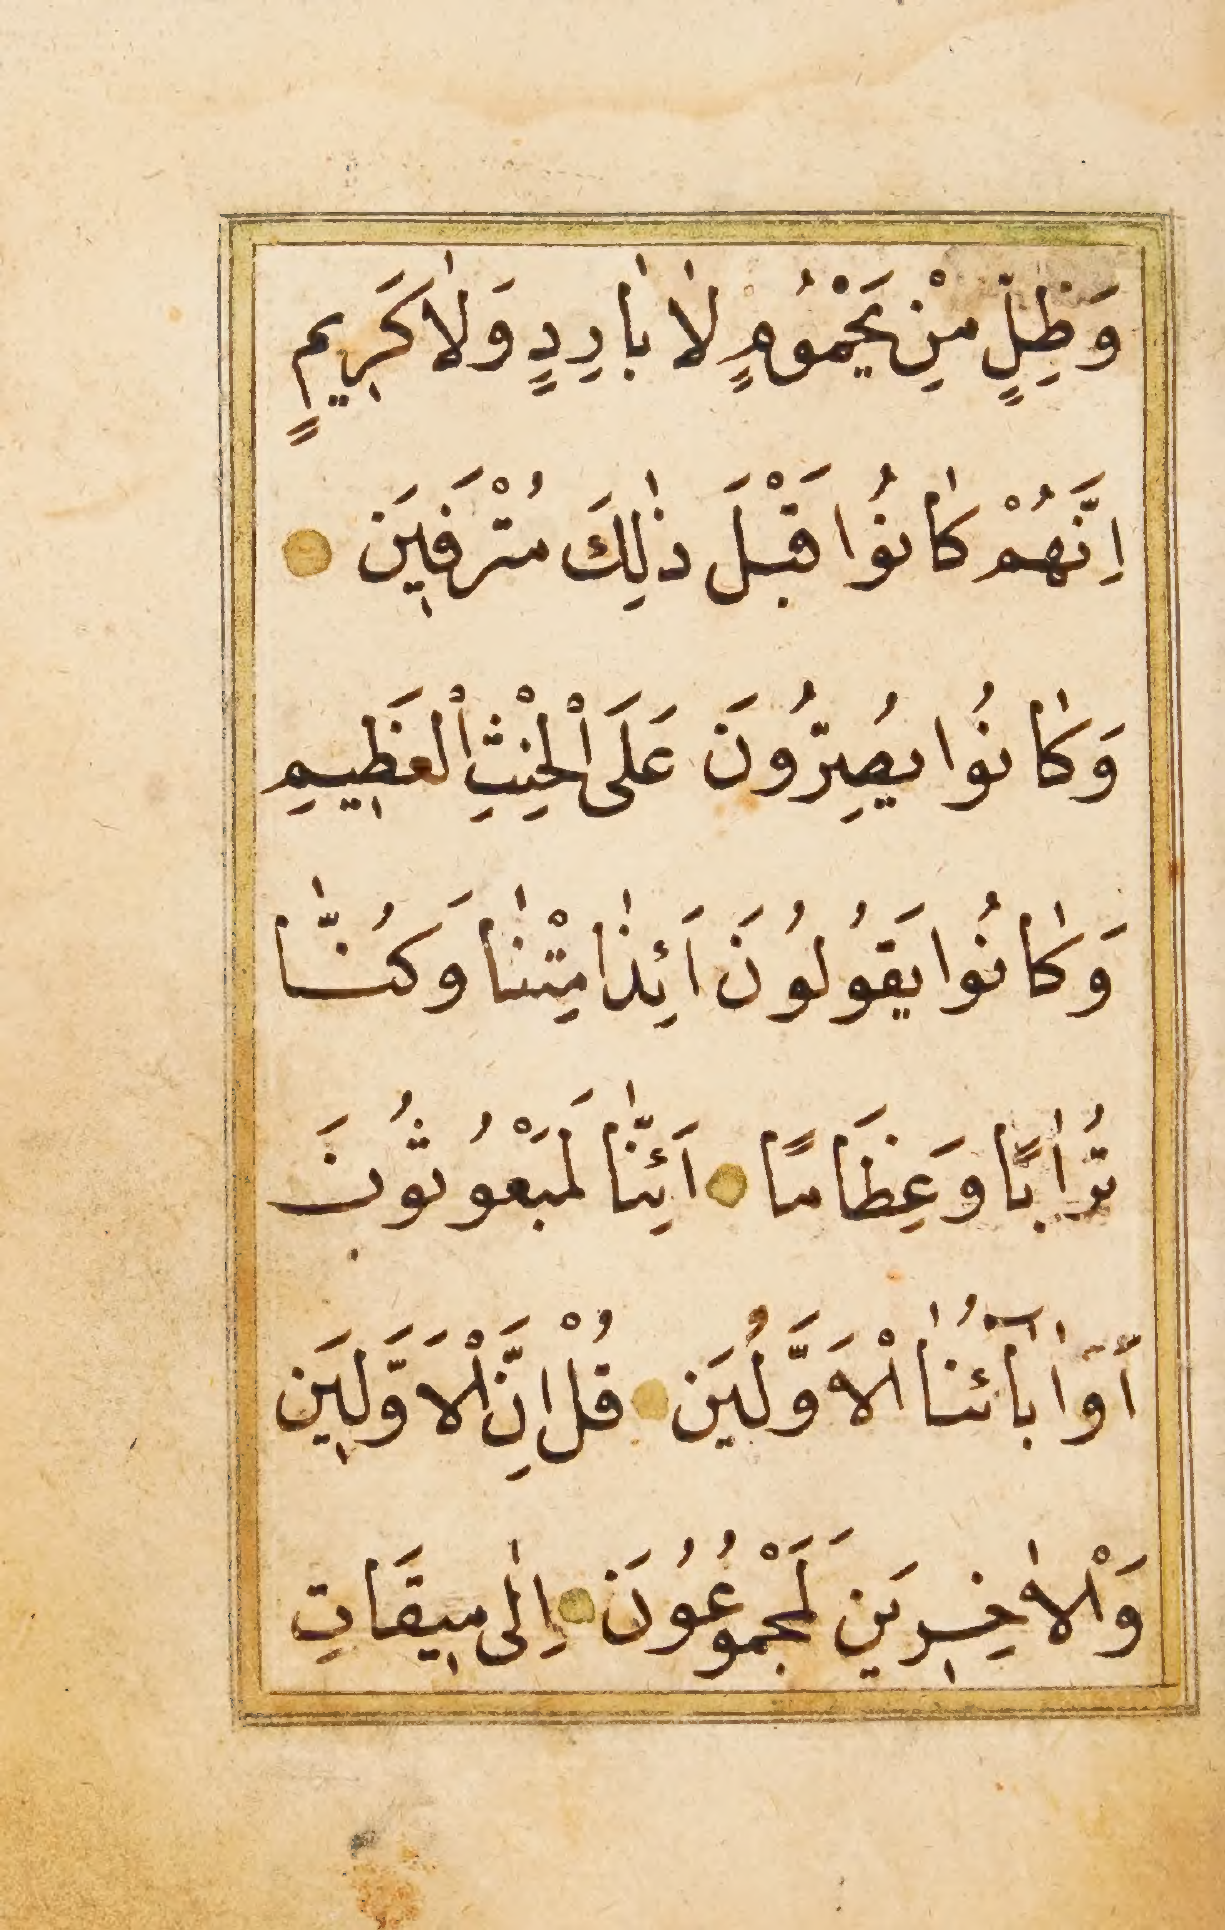 وَظِلٍّ مِنْ يَحْمُومٍ لٰا بٰارِدٍ وَلٰا كَرِيمٍ
اِنَّهُمْ كٰانُوا قَبْلَ ذٰلِكَ مُتْرَفِينَ
وَكٰانُوا يُصِرُّونَ عَلَى الْحِنْثِ الْعَظِيمِ
وَكٰانُوا يَقُولُونَ اَئِذٰا مِتْنٰا وَكُنّٰا
تُرٰابًا وَعِظَامًا اَئِنّٰا لَمَبْعُوثُونَ
اَوَاٰبٰٓائُنٰا الْاَوَّلُونَ قُلْ اِنَّ الْاَوَّلِينَ
وَالْاٰخِرِينَ لَمَجْمُوعُونَ اِلٰى مِيقَاتِ